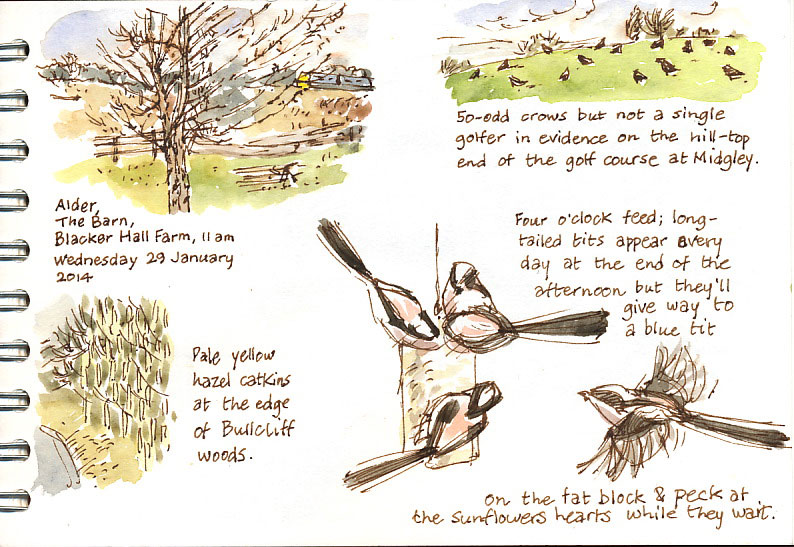 Alder,
The Barn,
Blacker Hall Farm, 11 am
Wednesday 29 January
2014
50-odd crows but not a single
golfer in evidence on the hill-top
end of the golf course at Midgley.
Pale yellow
hazel catkins
at the edge
of Bullcliff
woods.
Four o'clock feed; long-
tailed tits appear every
day at the end of the
afternoon but they'll
give way to
a blue tit
on the fat block & peck at
the sunflowers hearts while they wait.